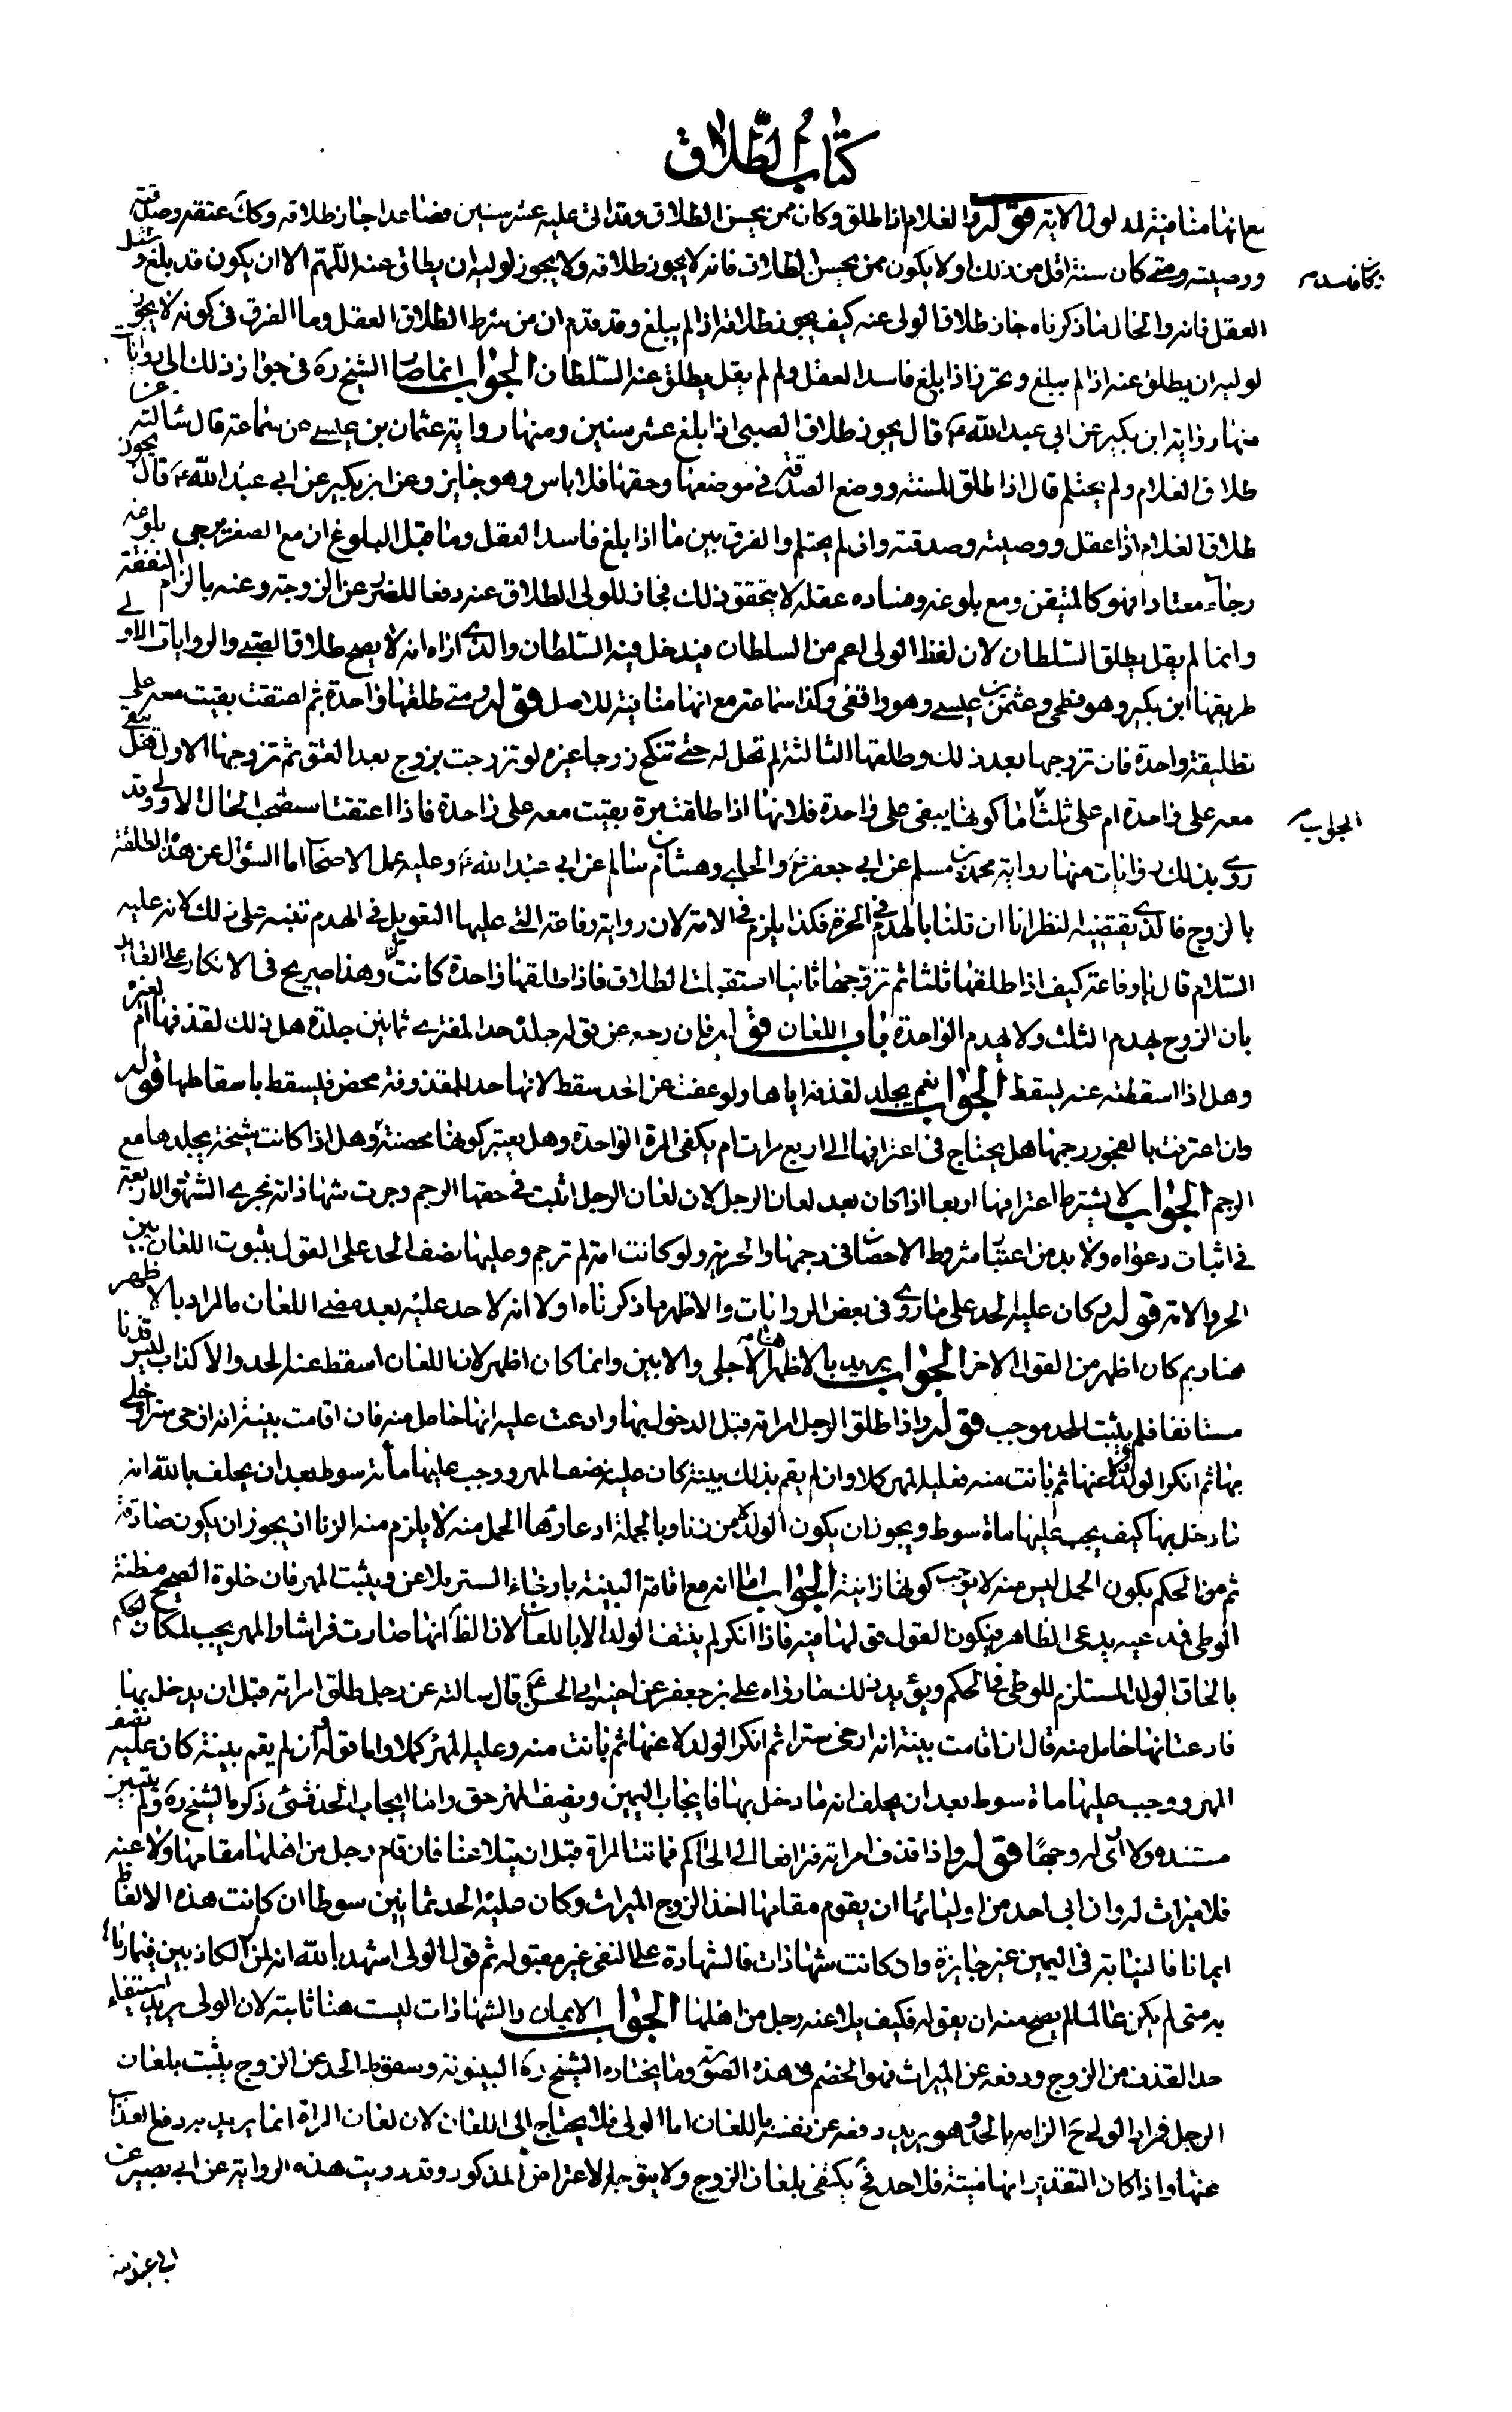 كتاب الطلاق
مع انها منافية لمدلول الاية قوله والغلام اذا طلق وكان ممن يحسن الطلاق وقد اتى عليه عشر سنين فصاعدا جاز طلاقه وكك عتقه وصدقته
ووصيته ومتى كان سنه اقل من ذلك او لا يكون ممن يحسن الطلاق فانه لا يجوز طلاقه ولا يجوز لوليه ان يطلق عنه اللهم الا ان يكون قد بلغ و
بكا فاسد
العقل فانه والحال ما ذكرناه جاز طلاق الولى عنه كيف يجوز طلاقه اذا لم يبلغ وقد تقدم ان من شرط الطلاق العقل وما الفرق فى كونه لا يجوز
لوليه ان يطلق عنه اذا لم يبلغ ويجوز اذا بلغ فاسد العقل ولم لم يقل يطلق عنه السلطان الجواب انما صار الشيخ ره فى جواز ذلك الى روايات
منها رواية ابن بكير عن ابى عبد الله ع قال يجوز طلاق الصبى اذا بلغ عشر سنين ومنها رواية عثمان بن عيسى عن سماعة قال سالته عن
طلاق الغلام ولم يحتلم قال اذا طلق للسنة ووضع الصدقة فى موضعها وحقها فلا باس وهو جايز وعن ابن بكير عن ابى عبد الله ع قال يجوز
طلاق الغلام اذا عقل ووصيته وصدقته وان لم يحتلم والفرق بين ما اذا بلغ فاسد العقل وما قبل البلوغ ان مع الصغر يرجى بلوغه
رجاء معتادا فهو كالمتيقن ومع بلوغه وفساده عقله لا يتحقق ذلك فجاز للولى الطلاق عنه دفعا للضرر عن الزوجة وعنه بالزام النفقة
وانما لم يقل يطلق السلطان لان لفظ الولى اعم من السلطان فيدخل فيه السلطان والذى اراه انه لا يصح طلاق الصبى والروايات الاولى
طريقها ابن بكير وهو فطحى وعثمن بن عيسى وهو واقفى وكذا سماعة مع انها منافية للاصل قوله ومتى طلقها واحدة ثم اعتقت بقيت معه على
تطليقة واحدة فان تزوجها بعد ذلك وطلقها الثالثة لم تحل له حتى تنكح زوجا غيره لو تزوجت بزوج بعد العتق ثم تزوجها الاول هل تبقى
معه على واحدة ام على ثلث اما كونها يبقى على واحدة فلانها اذا طلقت مرة بقيت معه على واحدة فاذا اعتقت استصحب الحال الاولى وقد
الجواب
روى بذلك روايات منها رواية محمد بن مسلم عن ابى جعفر ع والحلبى وهشام بن سالم عن ابى عبد الله ع وعليه عمل الاصحاب اما السؤال عن هذه المطلقة
بالزوج فالذى يقتضيه النظر انا ان قلنا بالهدم فى الحرة فكذا يلزم فى الامة لان رواية رفاعة التى عليها التعويل فى الهدم تنبه على ذلك لانه عليه
السلام قال يا رفاعة كيف اذا طلقها ثلثا ثم تزوجها ثانيا استقبلت الطلاق فاذا طلقها واحدة كانت وهذا صريح فى الانكار على القايل
بان الزوج يهدم الثلث ولا يهدم الواحدة باب اللعان قوله فان رجع عن قوله جلد حد المفترى ثمانين جلدة هل ذلك لقذفها ام لغيره
وهل اذا اسقطته عنه يسقط الجواب نعم يجلد لقذفه اياها ولو عفت عن الحد سقط لانها حد للمقذوفة محض فيسقط باسقاطها قوله
وان اعترفت بالفجور رجمها هل يحتاج فى اعترافها الى اربع مرات ام يكفى المرة الواحدة وهل يعتبر كونها محصنة وهل اذا كانت شيخة يجلدها مع
الرجم الجواب لا يشترط اعترافها اربعا اذا كان بعد لعان الرجل لان لعان الرجل اثبت فى حقها الرجم وجرت شهاداته مجرى الشهود الاربعة
فى اثبات دعواه ولا بد من اعتبار شروط الاحصان فى رجمها والحرية ولو كانت امة لم ترجم وعليها نصف الحد على القول بثبوت اللعان بين
الحر والامة قوله كان عليه الحد على ما روى فى بعض الروايات والاظهر ما ذكرناه اولا انه لا حد عليه بعد مضى اللعان ما المراد بالاظهر
هنا وبم كان اظهر من القول الاخر الجواب يريد بالاظهر هنا الاجلى والابين وانما كان اظهر لان اللعان اسقط عنه الحد والاكذاب ليس قذفا
مستانفا فلم يثبت لحد موجب قوله واذا طلق الرجل امراته قبل الدخول بها وادعت عليه انها حامل منه فان اقامت بينة انه ارخى سترا وخلى
بها ثم انكر الولد لاعنها ثم بانت منه وعليه المهر كملا وان لم يقم بذلك بينة كان عليه نصف المهر ووجب عليها مائة سوط بعد ان يحلف بالله انه
ما دخل بها كيف يجب عليها ماة سوط ويجوز ان يكون الولد من زنا وبالجملة ادعاؤها الحمل منه لا يلزم منه الزنا اذ يجوز ان يكون صادقة
ثم مع الحكم بكون الحمل ليس منه لا يوجب كونها زانية الجواب اما انه مع اقامة البينة بارخاء الستر يلاعن ويثبت المهر فان خلوة الصحيح مظنة
الوطى فمدعيه يدعى الظاهر فيكون القول قولها فيه فاذا انكر لم ينتف الولد الا باللعان لان الظ انها صارت فراشا والمهر يجب لمكان الحكم
بالحاق الولد المستلزم للوطى فى الحكم ويؤيد ذلك ما رواه على بن جعفر عن اخيه ابى الحسن ع قال سالته عن رجل طلق امراته قبل ان يدخل بها
فادعت انها حامل منه قال ان اقامت بينة انه ارخى سترا ثم انكر الولد لاعنها ثم بانت منه وعليه المهر كملا واما قوله وان لم يقم بينة كان عليه نصف
المهر ووجب عليها ماة سوط بعد ان يحلف انه ما دخل بها فايجاب اليمين ونصف المهر حق واما ايجاب الحد فشئ ذكره الشيخ ره ولم يتبين
مستنده ولا ارى له وجها قوله واذا قذف امراته فترافعا الى الحاكم فماتت المراة قبل ان يتلاعنا فان قام رجل من اهلها مقامها ولاعنه
فلا ميراث له وان ابى احد من اوليائها ان يقوم مقامها اخذ الزوج الميراث وكان عليه الحد ثمانين سوطا ان كانت هذه الالفاظ
ايمانا فالنيابة فى اليمين غير جايزة وان كانت شهاذات فالشهادة على النفى غير مقبوله ثم قول الولى اشهد بالله انه لمن الكاذبين فيما رماها
به متى لم يكن عالما لم يصح منه ان يقوله فكيف يلاعنه رجل من اهلها الجواب الايمان والشهاذات ليست هنا ثابتة لان الولى يريد استيفاء
حد القذف من الزوج ودفعه عن الميراث فهو الخصم فى هذه الصورة وما يختاره الشيخ ره البينونة وسقوط الحد عن الزوج يثبت بلعان
الرجل فراد الولى ح الزامه بالحد وهو يريد دفعه عن نفسه باللعان اما الولى فلا يحتاج الى اللعان لان لعان المراة انما يريد به دفع العذاب
عنها واذا كان التقدير انها ميتة فلا حد فح يكتفى بلعان الزوج ولا يتوجه الاعتراض المذكور وقد رويت هذه الرواية عن ابى بصير عن
ابى عبد الله